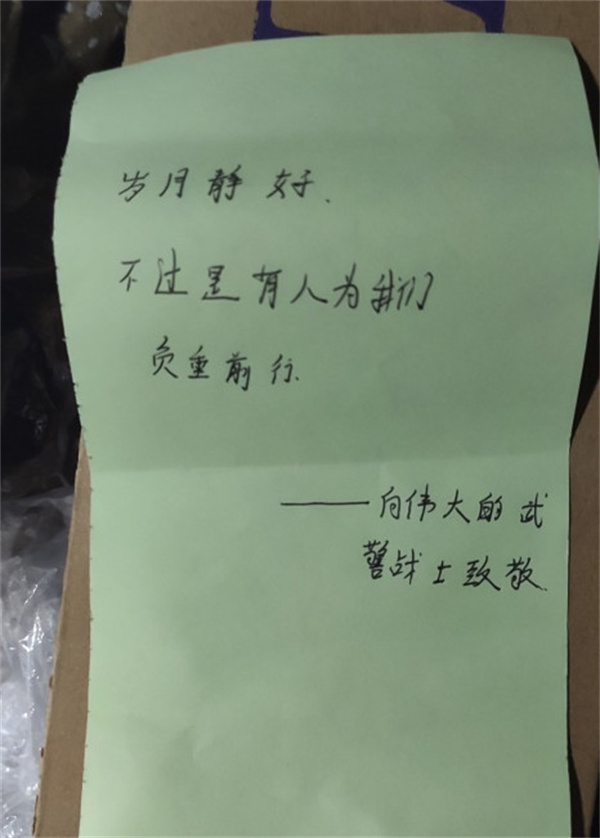 岁月静好、
不过是有人为我们
负重前行.
——向伟大的武
警战士致敬.